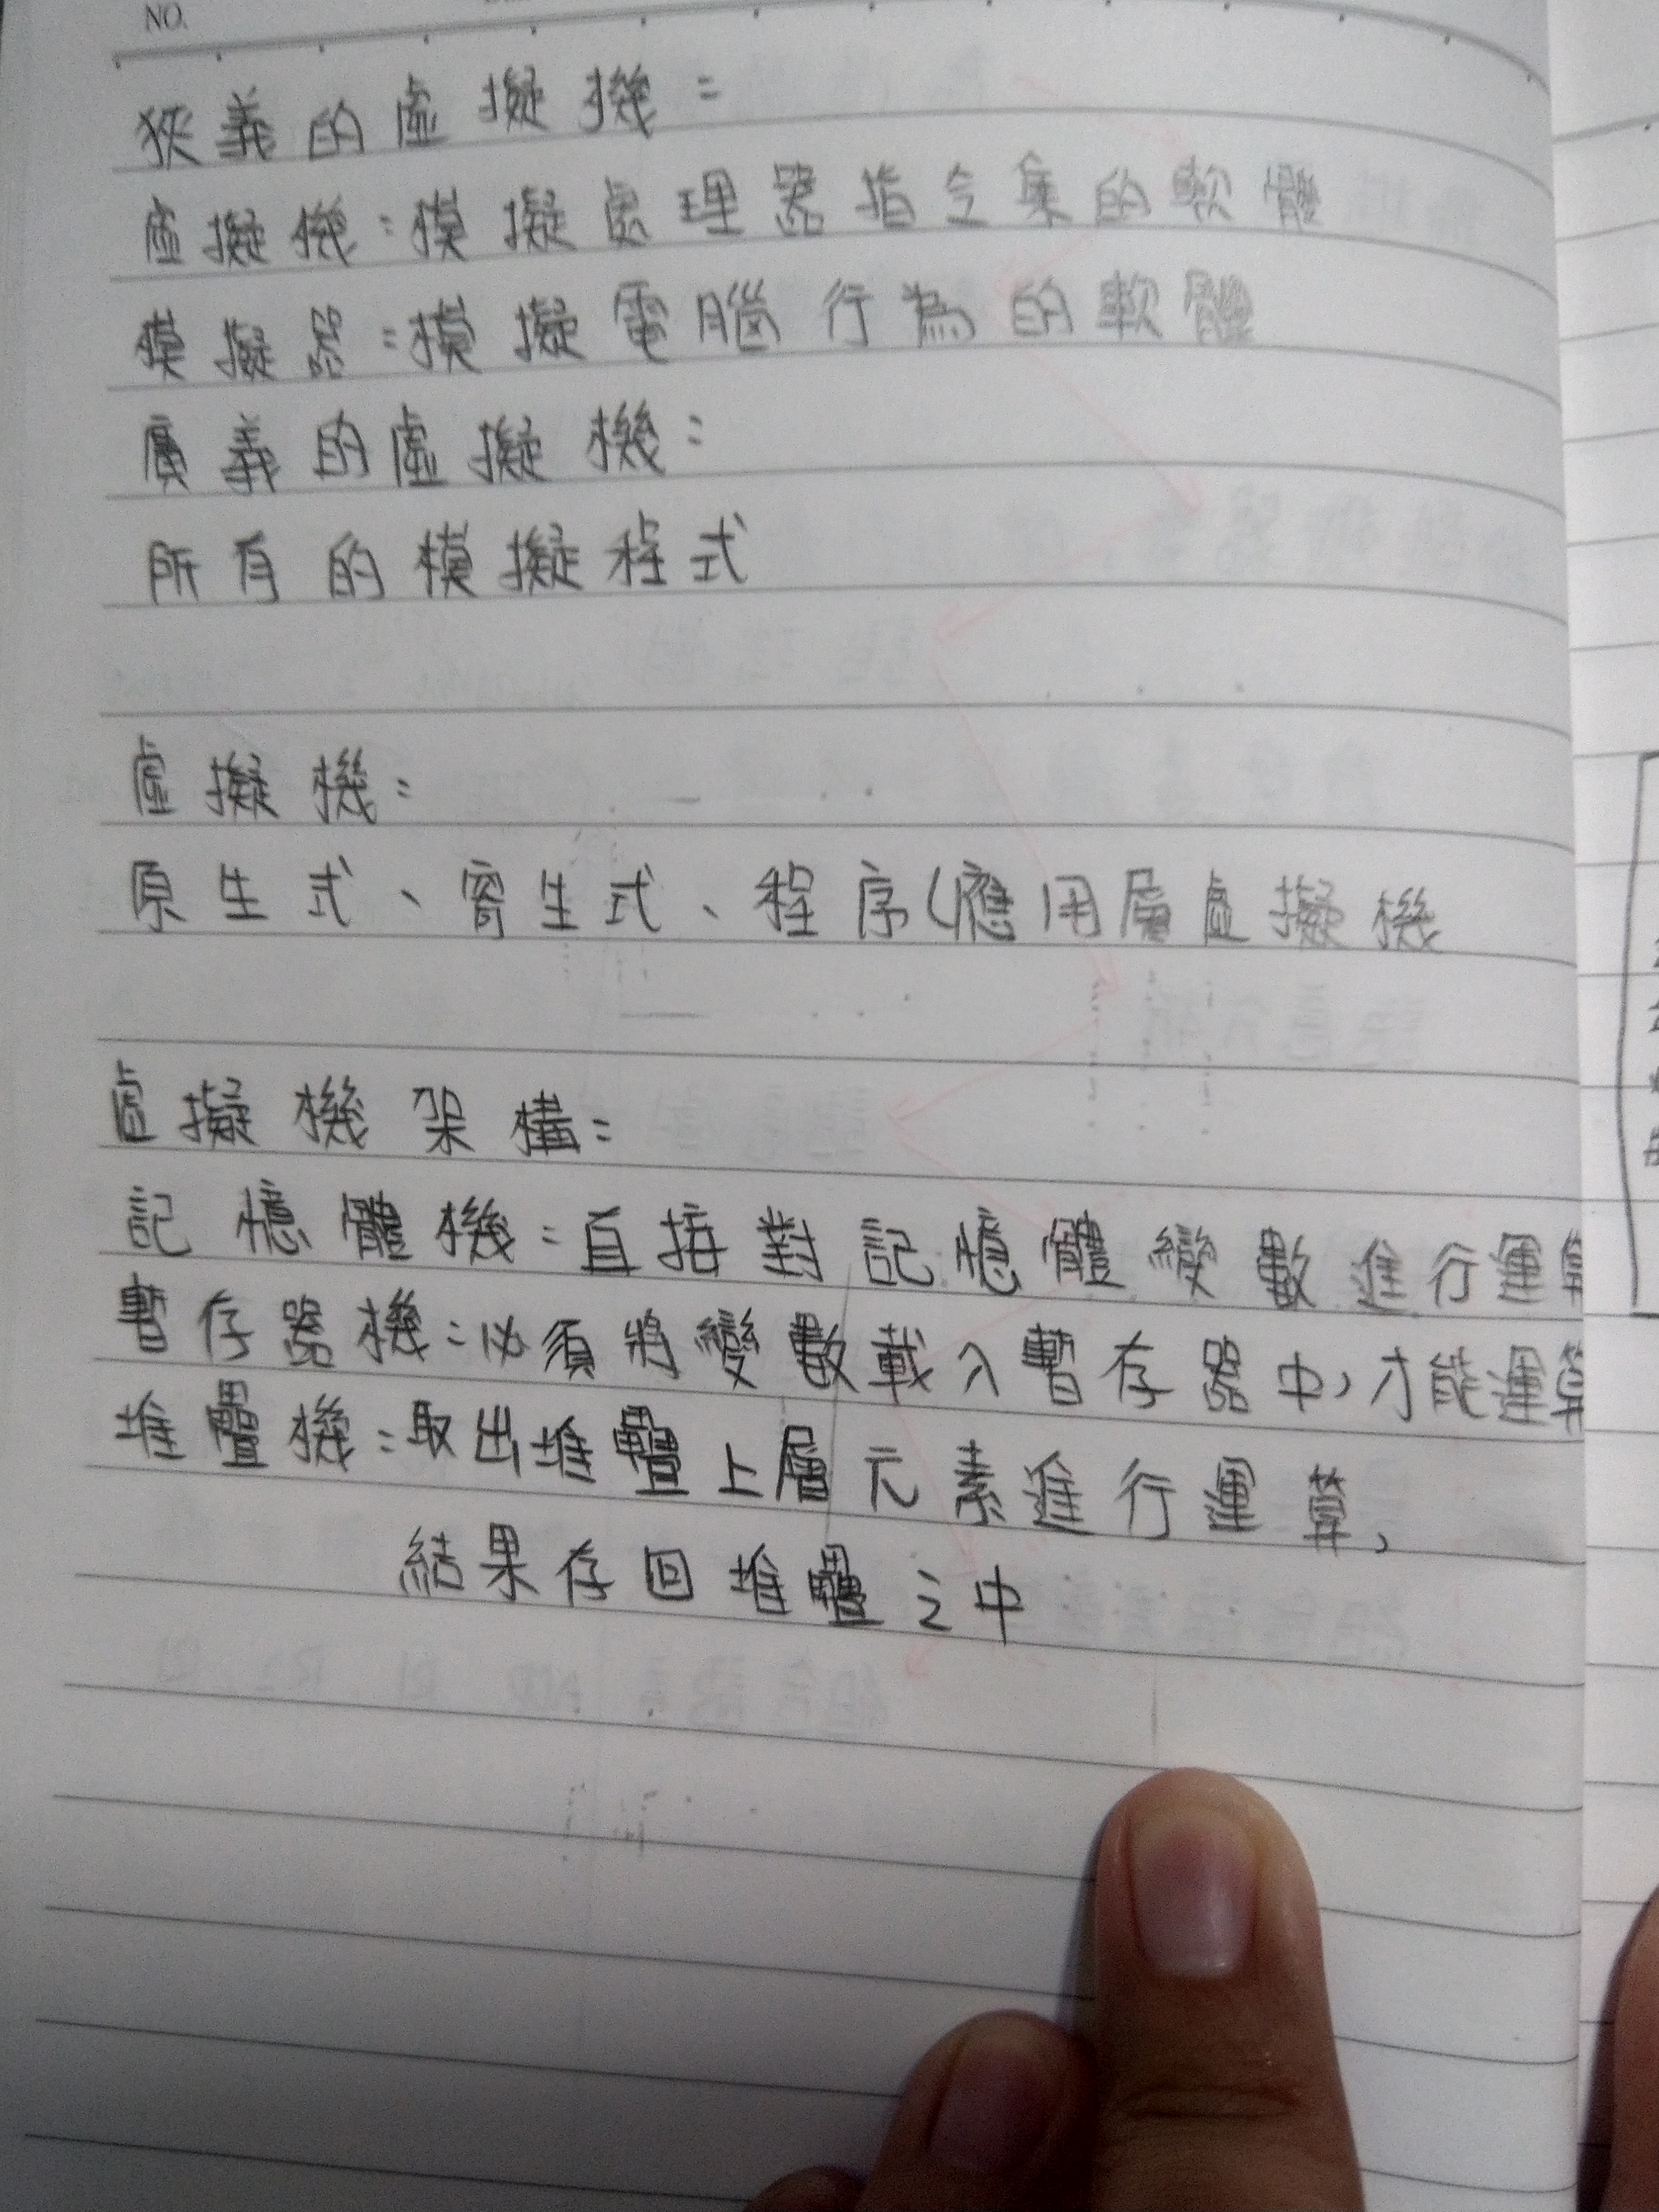 NO.
狹義的虛擬機:
虛擬機:模擬處理器指令集的軟體
模擬器:模擬電腦行為的軟體
廣義的虛擬機:
所有的模擬程式
虛擬機:
原生式、寄生式、程序(應用層虛擬機
虛擬機架構:
記憶體機:直接對記憶體變數進行運算
暫存器機:必須將變數載入暫存器中,才能運算
堆疊機:取出堆疊上層元素進行運算,
結果存回堆疊之中